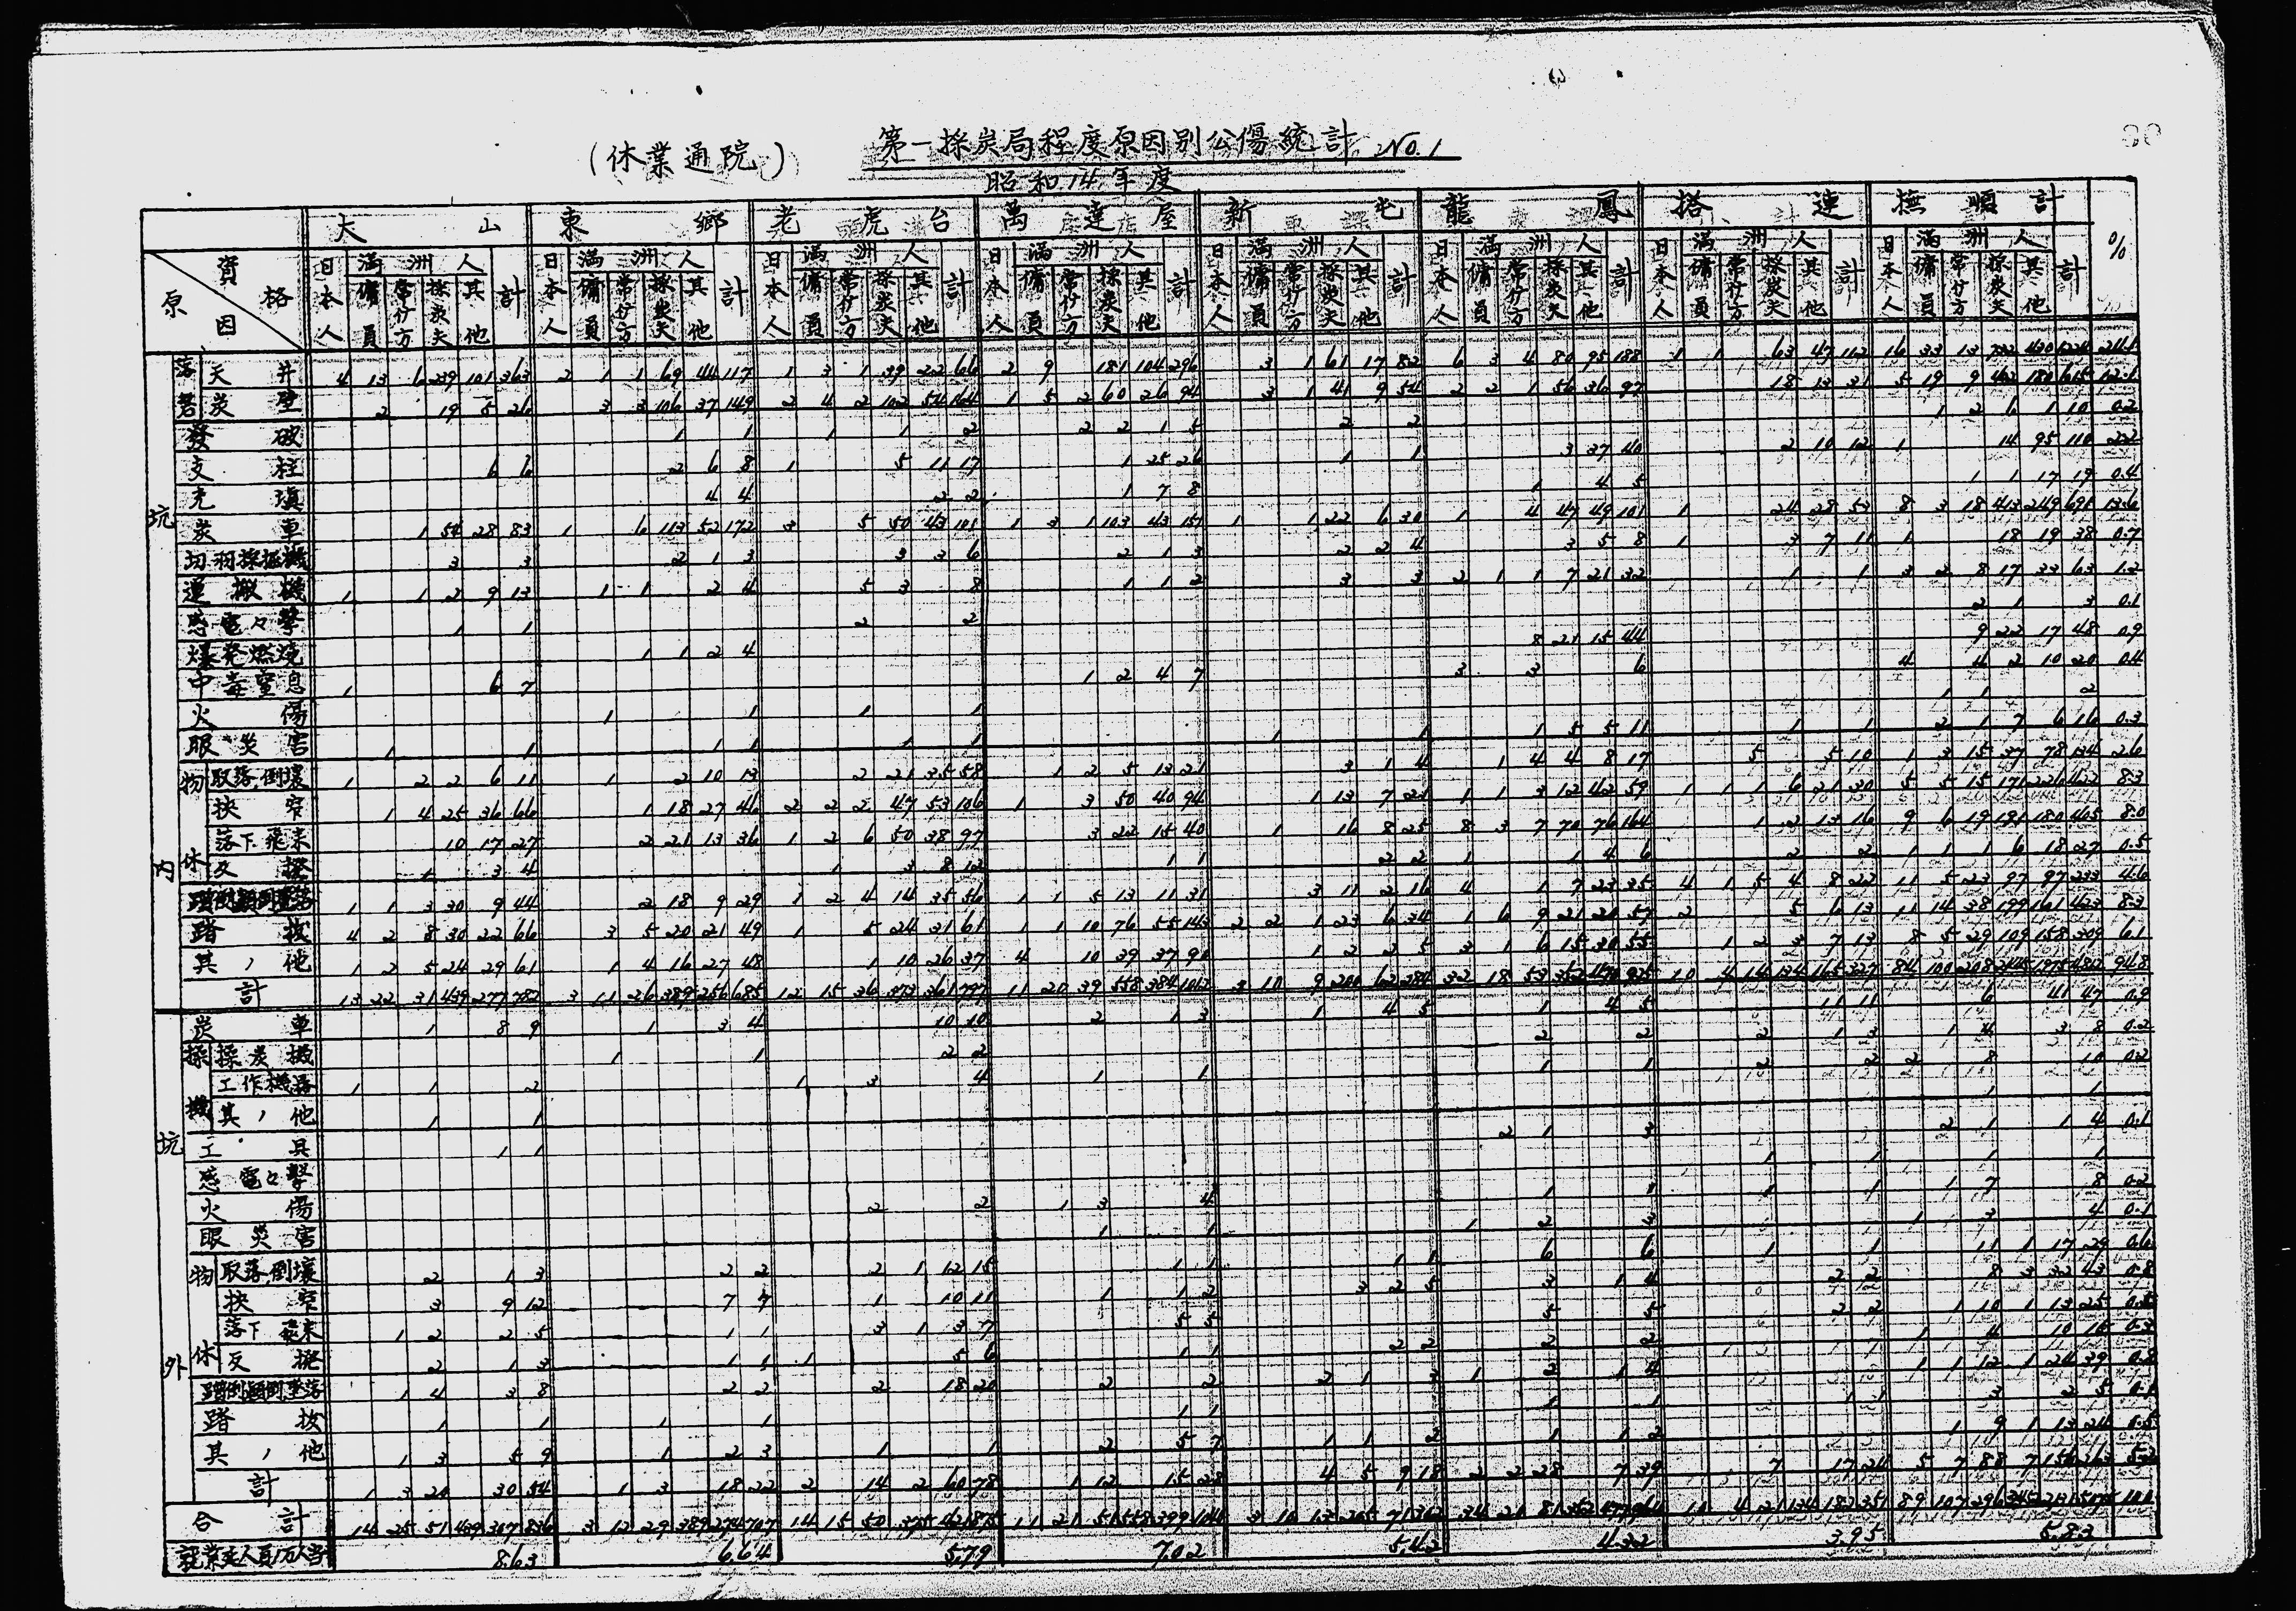 (休業通院) 第一採炭局程度原因別公傷統計 No.1
昭和14年度
大山 東鄉 老虎台 萬達屋 新屯 龍鳳 搭連 撫順計 %
資格 原因
日本人 滿洲人 傭員 常役方 採炭夫 其他 計
坑内
落磐 天井 4 13 6 239 101 363 2 1 1 69 44 117 1 3 1 39 22 66 2 9 181 104 296 3 1 61 17 82 6 3 4 80 95 188 1 1 63 47 112 16 33 13 732 430 1224 24.1
炭壁 2 19 5 26 3 3 106 37 149 2 4 2 102 54 164 1 5 2 60 26 94 3 1 41 9 54 2 2 1 56 36 97 18 13 31 5 19 9 402 180 615 12.1
發破 1 1 1 1 2 2 2 1 5 2 2 1 2 6 1 10 0.2
支柱 6 6 2 6 8 1 5 11 17 1 25 26 1 1 3 37 40 2 10 12 1 14 95 110 2.2
充塡 4 4 2 2 1 7 8 1 4 5 1 1 17 19 0.4
炭車 1 54 28 83 1 6 113 52 172 3 5 50 43 101 1 3 1 103 43 151 1 1 22 6 30 1 4 47 49 101 1 24 28 53 8 3 18 413 249 691 13.6
切羽採掘機 3 3 2 1 3 3 3 6 2 1 3 2 2 4 3 5 8 1 3 7 11 1 18 19 38 0.7
運搬機 1 1 2 9 13 1 1 2 4 5 3 8 1 1 2 3 3 2 1 1 7 21 32 1 1 3 2 8 17 33 63 1.2
感電々擊 1 1 2 2 2 1 3 0.1
爆発燃燒 1 1 2 4 8 21 15 44 9 22 17 48 0.9
中毒窒息 1 6 7 1 2 4 7 3 3 6 4 4 2 10 20 0.4
火傷 1 1 1 1 1 1 2
眼災害 1 1 1 1 1 1 1 1 1 5 5 11 1 1 2 1 7 6 16 0.3
物体
取落倒壞 1 2 2 6 11 1 2 10 13 2 21 35 58 1 2 5 13 21 3 1 4 1 4 4 8 17 5 5 10 1 3 15 37 78 134 2.6
挾窄 1 4 25 36 66 1 18 27 46 2 2 2 47 53 106 1 3 50 40 94 1 13 7 21 1 1 3 12 42 59 1 1 1 6 21 30 5 5 15 171 226 422 8.3
落下飛来 10 17 27 2 21 13 36 1 2 6 50 38 97 3 22 15 40 1 16 8 25 8 3 7 70 76 164 1 2 13 16 9 6 19 191 180 405 8.0
反撥 1 3 4 1 3 8 12 1 1 2 2 1 1 4 6 2 2 1 1 1 6 18 27 0.5
踏倒顚倒墜落 1 1 3 30 9 44 2 18 9 29 1 2 4 14 35 56 1 1 5 13 11 31 3 11 2 16 4 1 7 23 35 4 1 5 4 8 22 11 5 23 97 97 233 4.6
踏拔 4 2 8 30 22 66 3 5 20 21 49 1 5 24 31 61 1 1 10 76 55 143 2 2 1 23 6 34 1 6 9 21 20 57 2 5 6 13 11 14 38 199 161 423 8.3
其ノ他 1 2 5 24 29 61 1 4 16 27 48 1 10 26 37 4 10 39 37 90 1 2 2 5 3 1 6 15 30 55 1 2 3 7 13 8 5 29 109 158 309 6.1
計 13 22 31 439 277 782 3 11 26 389 256 685 12 15 36 373 361 797 11 20 39 558 384 1012 3 10 9 200 62 284 32 18 53 352 470 925 10 4 14 134 165 327 84 100 208 2445 1975 4812 94.8
坑外
炭車 1 8 9 1 3 4 10 10 2 1 3 1 4 5 1 4 5 11 11 6 41 47 0.9
操機
操炭機 1 1 2 2 2 2 2 1 3 1 4 3 8 0.2
工作機器 1 1 2 1 3 4 1 1 1 1 2 2 2 8 10 0.2
其ノ他 1 1 1 1
工具 1 1 2 1 3 2 1 1 4 0.1
感電々擊 1 1 1 1
火傷 2 2 1 3 4 1 1 1 1 1 7 8 0.2
眼災害 1 1 1 2 3 1 3 4 0.1
物体
取落倒壞 2 1 3 2 2 2 1 12 15 1 1 1 1 6 6 1 1 11 1 17 29 0.6
挾窄 3 9 12 7 7 1 10 11 1 1 2 3 2 5 3 1 4 2 2 8 3 32 43 0.8
落下飛来 1 2 2 5 1 1 3 1 3 7 5 5 5 5 2 2 1 10 1 13 25 0.5
反撥 2 1 3 1 1 1 5 6 1 1 2 2 2 2 1 4 10 15 0.3
踏倒顚倒墜落 1 4 3 8 2 2 2 18 20 2 2 2 1 3 1 2 1 4 1 1 12 1 24 39 0.8
踏拔 1 1 1 1 1 1 1 1 1 1 3 2 5 0.1
其ノ他 1 3 5 9 1 2 3 1 1 2 5 7 1 1 2 1 1 2 1 9 1 13 24 0.5
計 1 3 20 30 54 1 3 18 22 2 14 2 60 78 1 12 15 28 4 5 9 18 2 2 28 7 39 7 17 24 5 7 88 7 156 263 5.2
合計 14 25 51 439 307 836 3 12 29 389 274 707 14 15 50 375 421 875 11 21 51 558 399 1040 3 10 13 205 71 302 34 21 81 352 477 964 10 4 21 134 182 351 89 107 296 2452 2131 5075 100
8.63 6.64 5.79 7.02 5.42 4.32 3.95 5.83